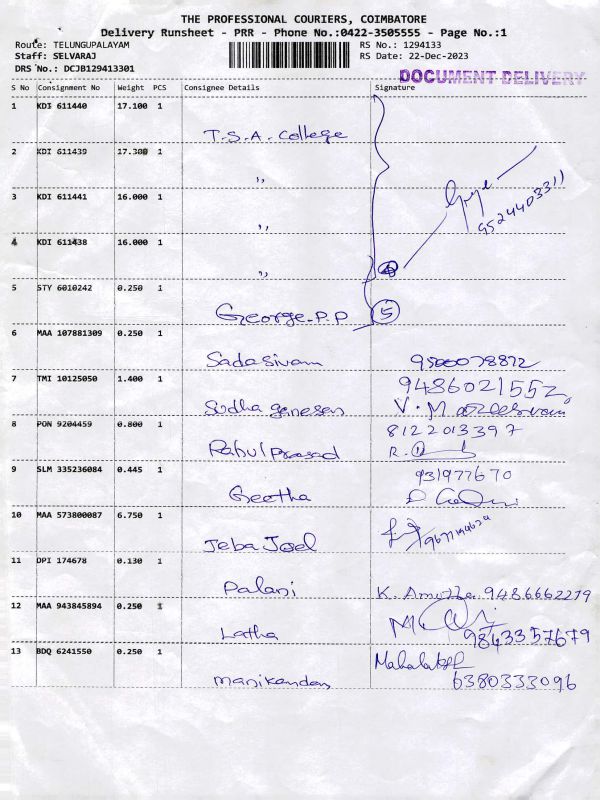 THE PROFESSIONAL COURIERS, COIMBATORE
Delivery Runsheet - PRR - Phone No.:0422-3505555 - Page No.:1
Route: TELUNGUPALAYAM RS No.: 1294133
Staff: SELVARAJ RS Date: 22-Dec-2023
DRS No.: DCJB129413301 DOCUMENT DELIVERY
S No Consignment No Weight PCS Consignee Details Signature
1 KDI 611440 17.100 1
T.S.A. College
2 KDI 611439 17.300 1
,,
3 KDI 611441 16.000 1 9524403311
,,
4 KDI 611438 16.000 1
,, 4
5 STY 6010242 0.250 1
George.P.P 5
6 MAA 107881309 0.250 1
Sadasivam
7 TMI 10125050 1.400 1 9486021552
Sudha ganesan
8 PON 9204459 0.800 1 8122013397
Rahul Prasad R.
9 SLM 335236084 0.445 1 931977670
Geetha
10 MAA 573800087 6.750 1
Jeba Joel
11 DPI 174678 0.130 1
Palani K. Amutha 9486662279
12 MAA 943845894 0.250 1
Latha 9843357679
13 BDQ 6241550 0.250 1
Manikandan 6380333096